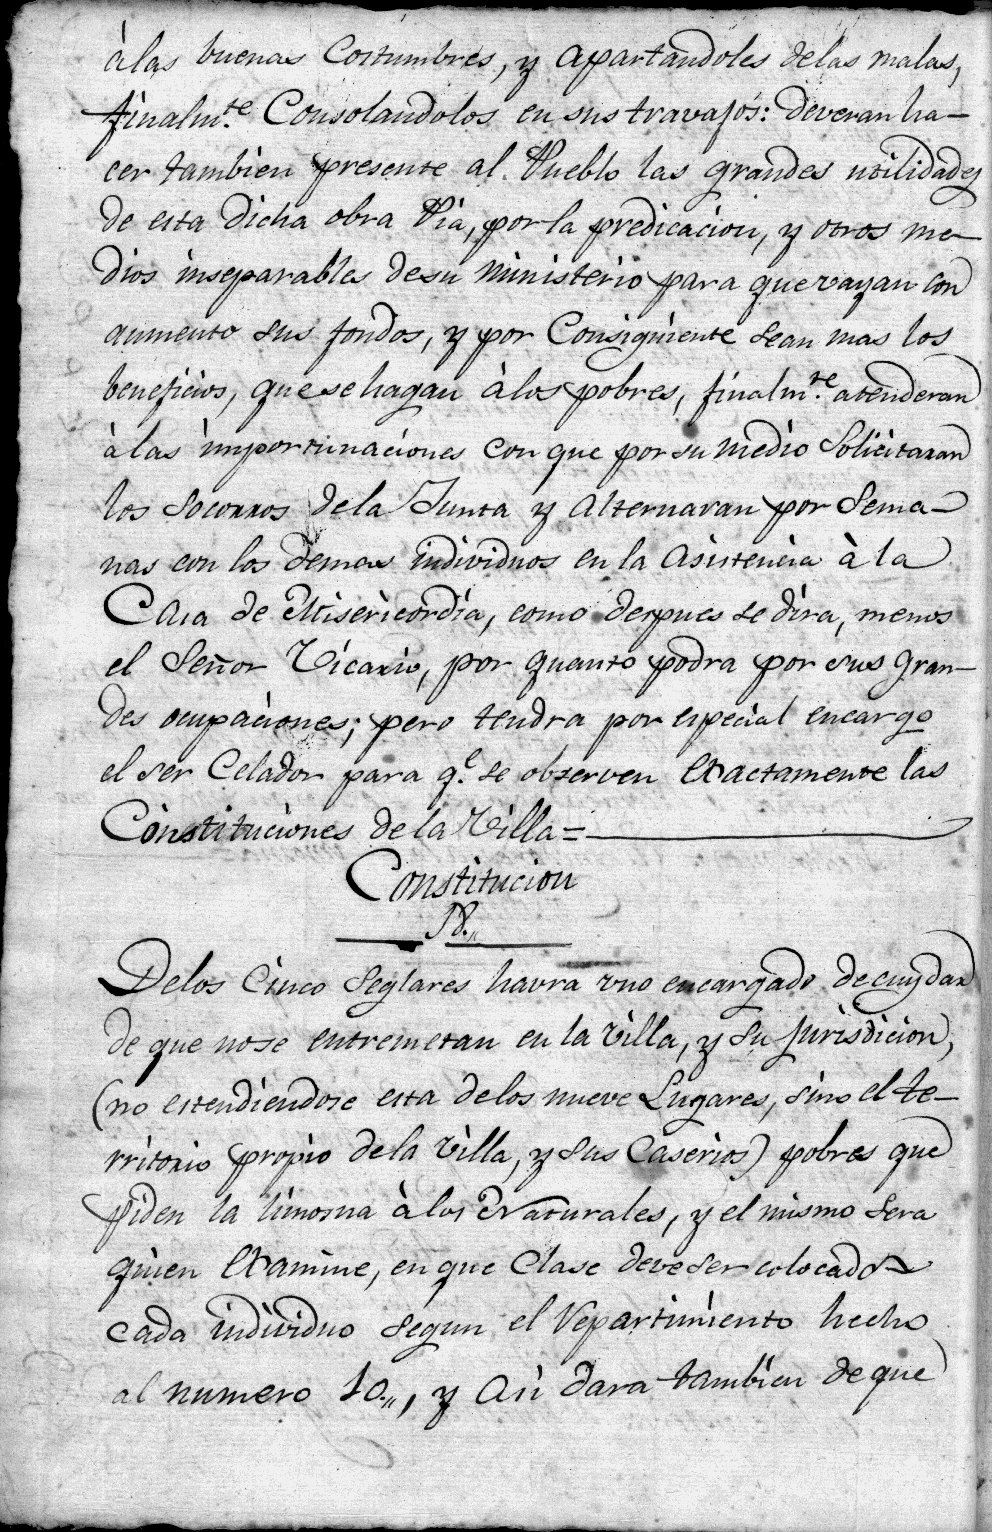 à las buenas Costumbres, y apartandoles delas malas,
finalm.te Consolandolos en sus travajos: deveran ha-
cer tambien presente al Pueblo las grandes utilidades
de esta dicha obra Pia, por la predicacion, y otros me-
dios inseparables de su ministerio para que vayan con
aumento sus fondos, y por Consiguiente sean mas los
beneficios, que se hagan à los pobres, finalm.te atenderan
à las importunaciones con que por su medio Solicitaran
los Socorros dela Junta y alternaran por Sema-
nas con los demas individuos en la asistencia à la
Casa de Misericordia, como despues se dira, menos
el Señor Vicario, por quanto podra por sus gran-
des ocupaciones; pero tendra por especial encargo
el ser Celador para q.e se observen Exactamente las
Constituciones de la Villa=
Constitucion
18.,,
Delos Cinco Seglares havra uno encargado de cuydar
de que no se entremetan en la Villa, y su Jurisdicion,
(no estendiendose esta delos nueve Lugares, sino el te-
rritorio propio de la Villa, y sus Caserios) pobres que
piden la limosna à los Naturales, y el mismo Sera
quien Examine, en que Clase deve ser colocado
cada individuo segun el Repartimiento hecho
al numero 10.,, y asi dara tambien de que